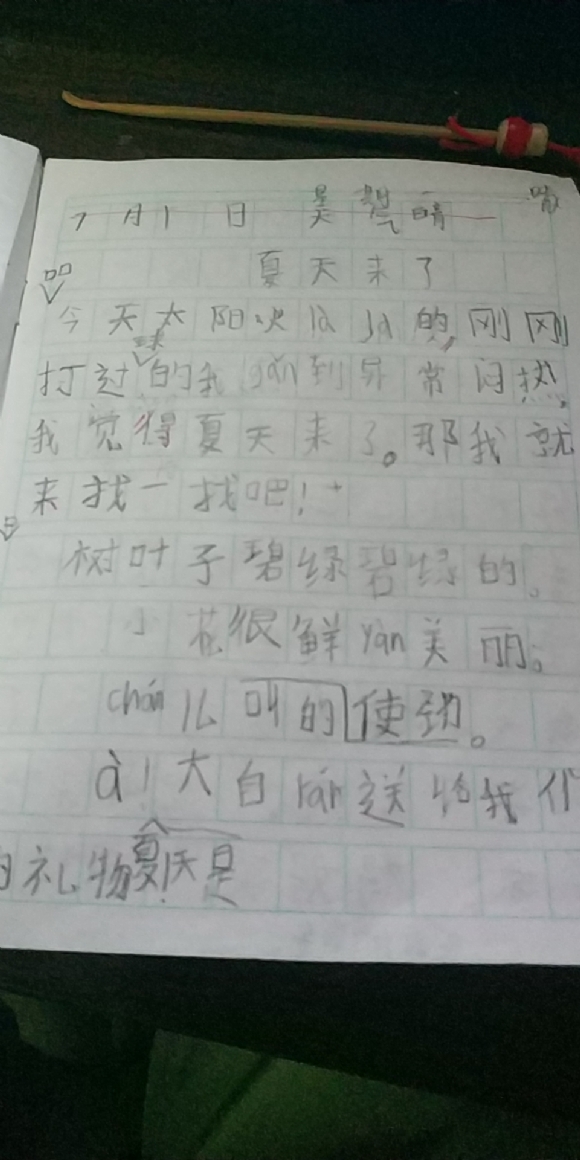 7月1日 星期一 晴
夏天来了
今天太阳火là là的,刚刚
打过球的我gǎn到异常闷热。
我觉得夏天来了。那我就
来找一找吧!
树叶子碧绿碧绿的。
小花很鲜yàn美丽。
chán儿叫的使劲。
à!大自rán送给我们
的礼物夏天是